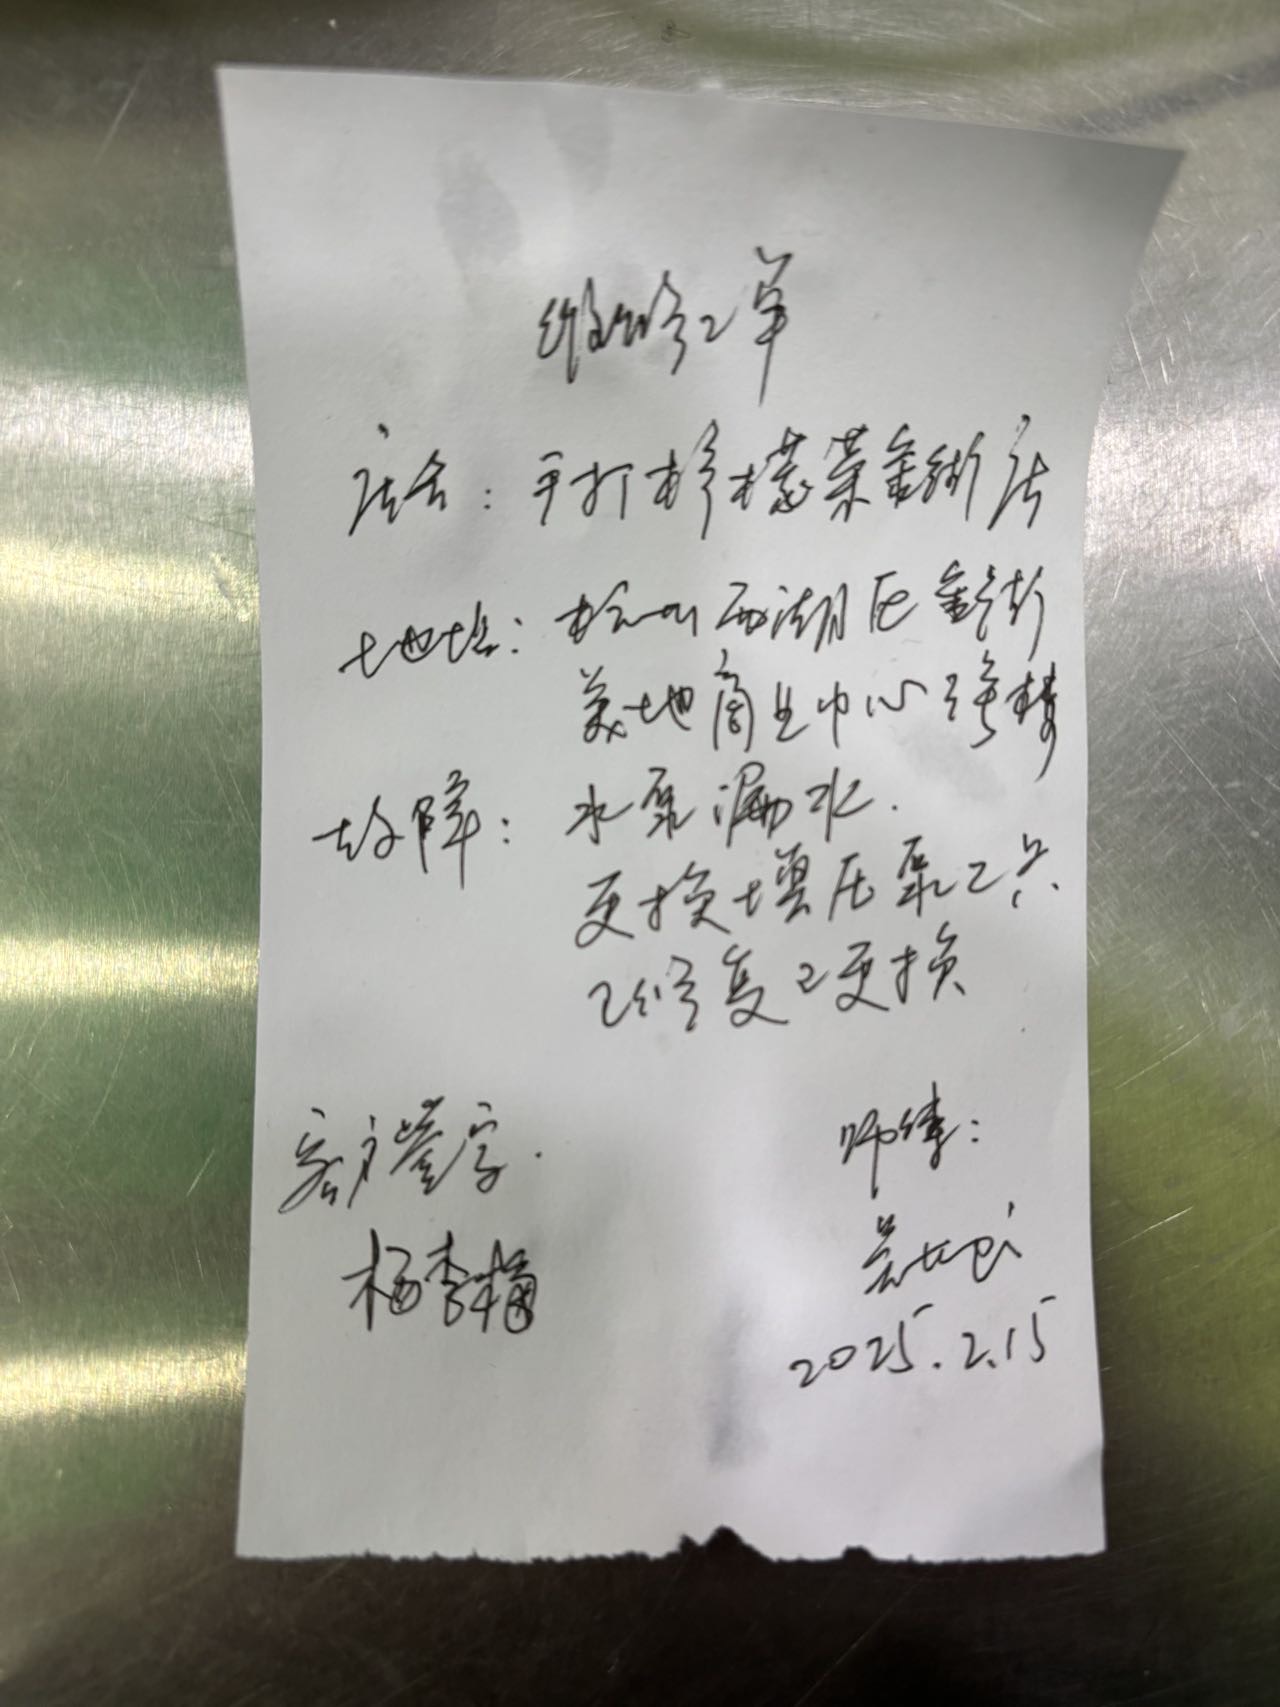 维修工单
店名：手打柠檬茶金街店
地址：杭州西湖区金街
美地商业中心2号楼
故障：水泵漏水.
更换增压泵
已修复已更换
客户签字.
师傅：
2025.2.15